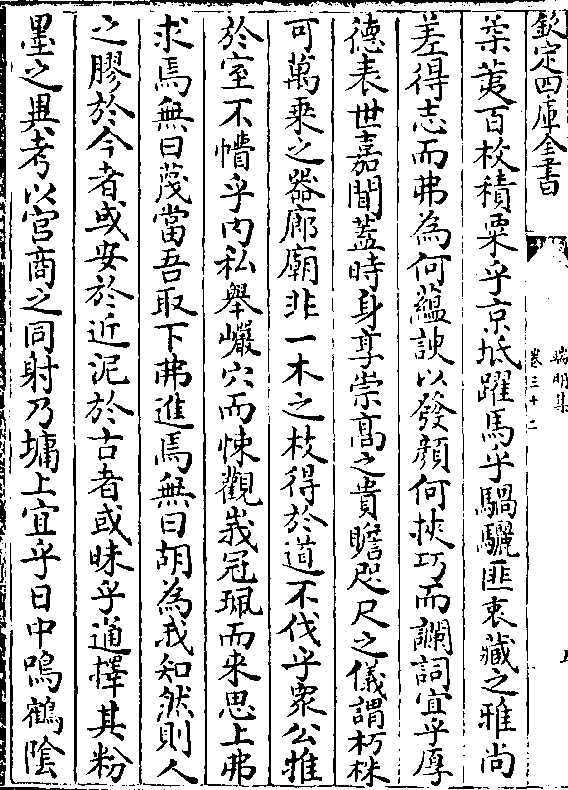 欽定四庫全書
端明集
卷三十二
葉荑百枚積粟乎京坻躍馬乎騧驪匪衷藏之雅尚
差得志而弗為何蘊諛以發顔何挾巧而讕詞宜乎厚
德表世嘉聞蓋時身享崇髙之貴瞻咫尺之儀謂朽株
可萬乘之器廊廟非一木之枝得於道不伐乎衆公惟
於室不懵乎内私舉巖穴而悚觀峩冠珮而来思上弗
求焉無曰蔑當吾取下弗進焉無曰胡為我知然則人
之膠於今者或安於近泥於古者或昧乎通擇其粉
墨之異考以宫商之同射乃墉上宜乎日中鳴鶴隂